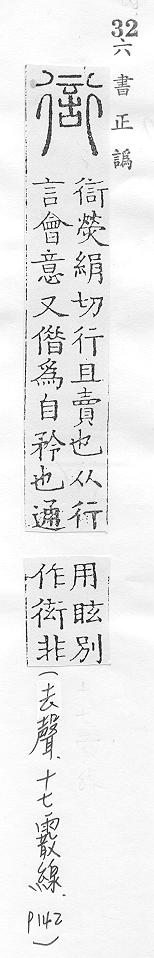 32六書正譌
熒絹切行且賣也从行
言會意又借為自矜也通
用眩別
作衒非
(去聲.十七霰線.P142)